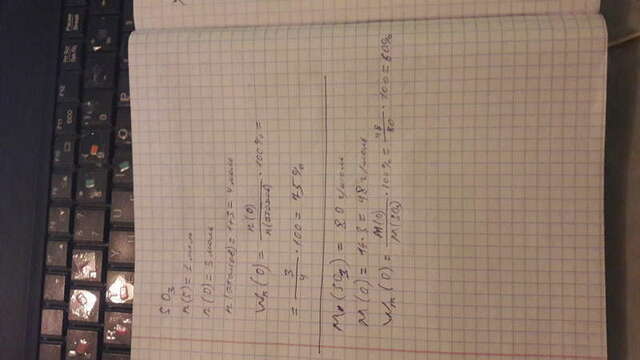 SO3
n(S) = 1 моль
n(O) = 3 моль
n(атомов) = 1+3 = 4 моль
Wn(O) = n(O) / n(атомов) · 100% =
= 3/4 · 100 = 75%
Mr(SO3) = 80 г/моль
M(O) = 16·3 = 48 г/моль
Wm(O) = M(O) / M(SO3) · 100% = 48/80 · 100 = 60%